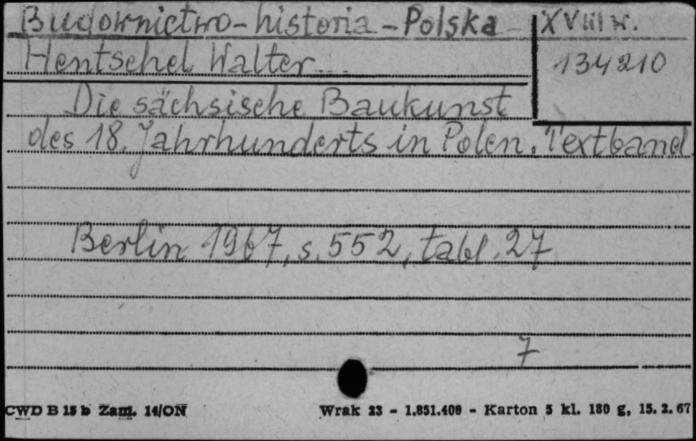 Budownictwo - historia - Polska XVIII w.
Hentschel Walter 134210
Die sächsische Baukunst
des 18. Jahrhunderts in Polen. Textband
Berlin 1967, s. 552, tabl. 27
7
CWD B 15 b Zam. 14/ON Wrak 23 - 1.851.408 - Karton 5 kl. 180 g, 15. 2. 67